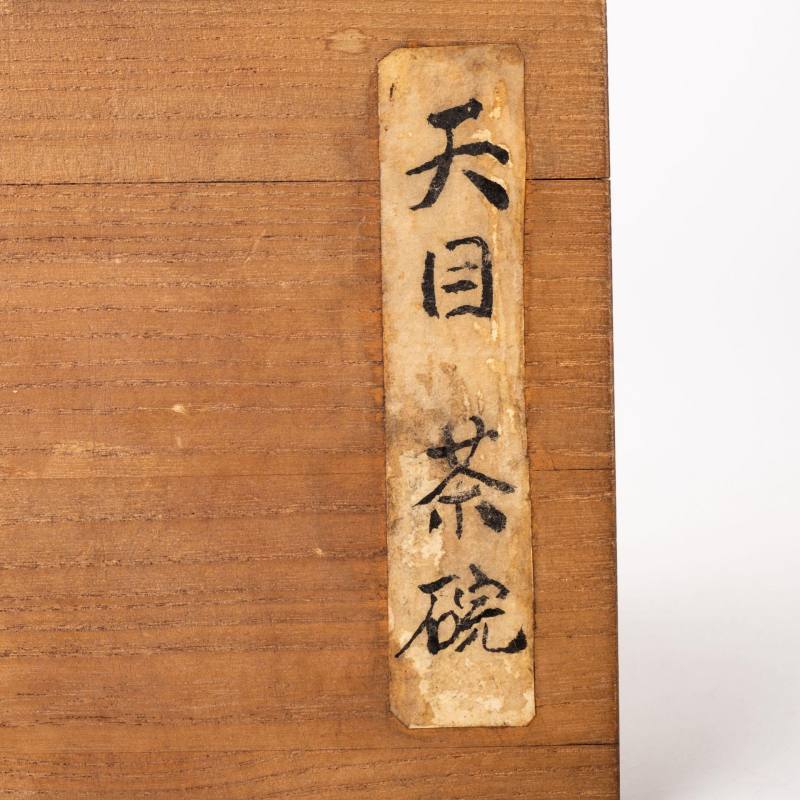 天目茶碗